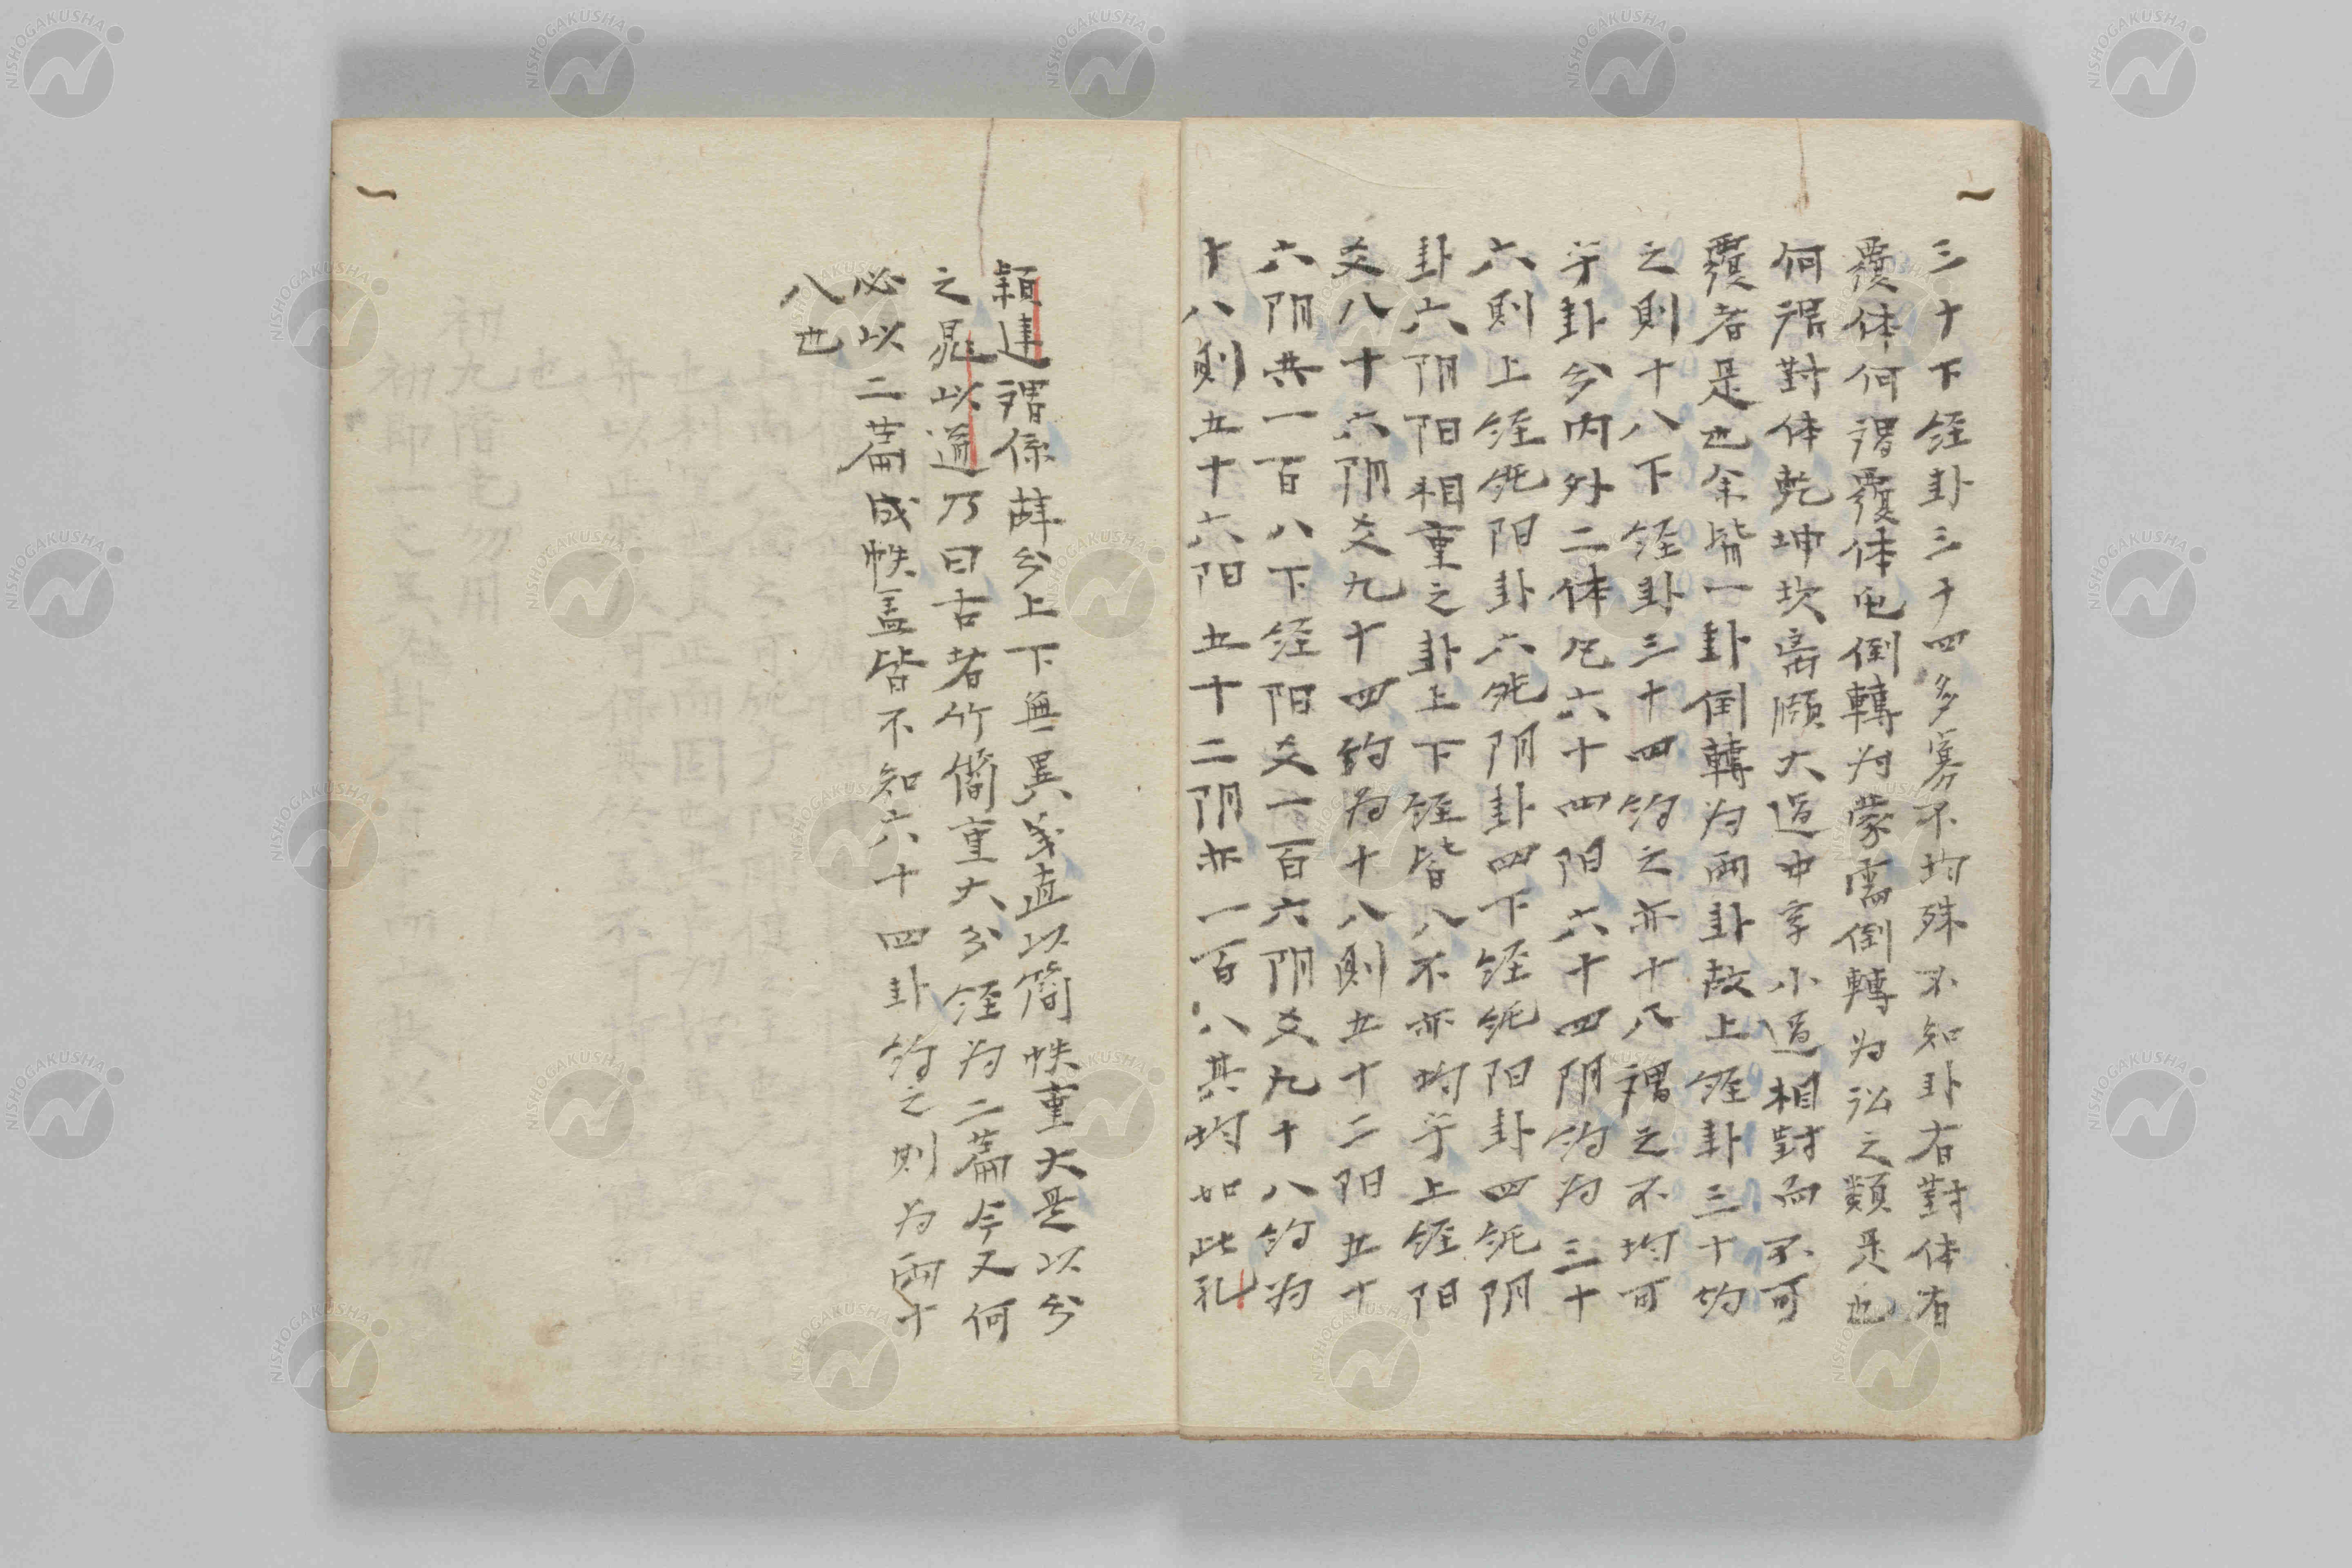 三十下經卦三十四多寡不均殊不知卦有對体有
覆体何謂覆体屯倒轉为蒙需倒轉为訟之類是也
何謂對体乾坤坎离頤大過中孚小過相對而不可
覆者是也余皆一卦倒轉为兩卦故上經卦三十約
之則十八下經卦三十四約之亦十八謂之不均可
乎卦分内外二体凡六十四阳六十四阴約为三十
六則上經純阳卦六純阴卦四下經純阳卦四純阴
卦六阴阳相重之卦上下經皆八不亦均乎上經阳
爻八十六阴爻九十四約为十八則五十二阳五十
六阴共一百八下經阳爻一百六阴爻九十八約为
十八則五十六阳五十二阴亦一百八其均如此孔
穎達謂係辞分上下無異義直以簡帙重大是以分
之晁以道乃曰古者竹簡重大分經为二篇今又何
必以二篇成帙盖皆不知六十四卦約之則为兩十
八也